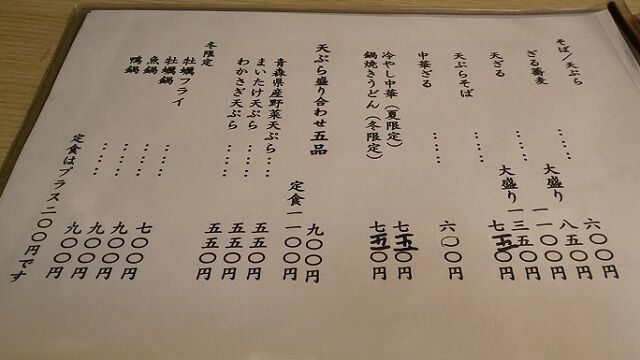 そば/天ぷら
ざる蕎麦 ‥‥‥ 六〇〇円
大盛り 八五〇円
天ざる ‥‥‥ 一一〇〇円
大盛り 一三五〇円
天ぷらそば ‥‥‥ 七五〇円
中華ざる ‥‥‥ 六〇〇円
冷やし中華(夏限定) 七五〇円
鍋焼きうどん(冬限定) 七五〇円
天ぷら盛り合わせ五品 九〇〇円
定食 一一〇〇円
青森県産野菜天ぷら‥‥ 五五〇円
まいたけ天ぷら ‥‥‥ 五五〇円
わかさぎ天ぷら ‥‥‥ 五五〇円
冬限定
牡蠣フライ ‥‥‥ 七〇〇円
牡蠣鍋 ‥‥‥ 九〇〇円
魚鍋 ‥‥‥ 九〇〇円
鴨鍋 ‥‥‥ 九〇〇円
定食はプラス二〇〇円です